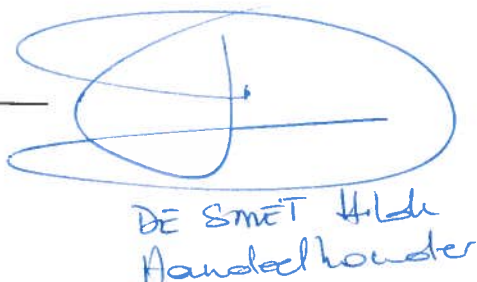 DE SMET Hilde
Aandeelhouder